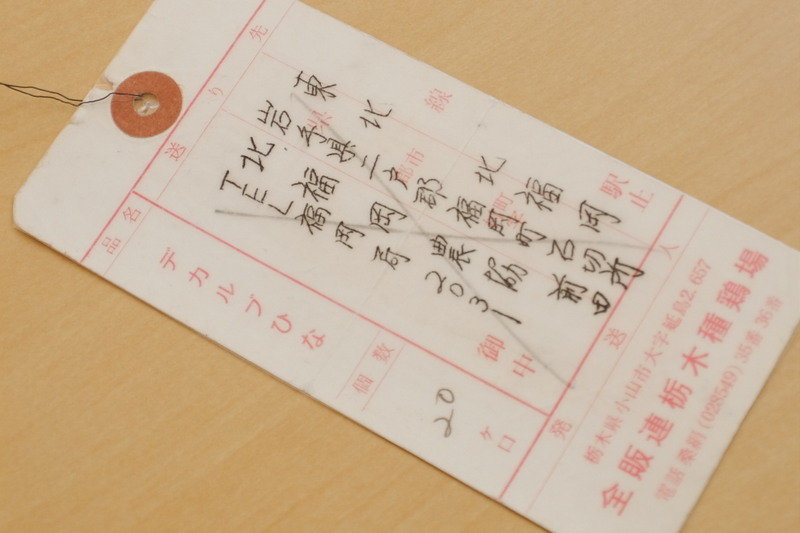 送り先
東北線 北福岡駅止
岩手県二戸郡福岡町石切所前田
北福岡農協 御中
TEL 福岡局 2031
品名 デカルブひな
個数 20ケ口
発送人
栃木県小山市大字延島2,657
全販連栃木種鶏場
電話 桑絹(028549)35番 36番